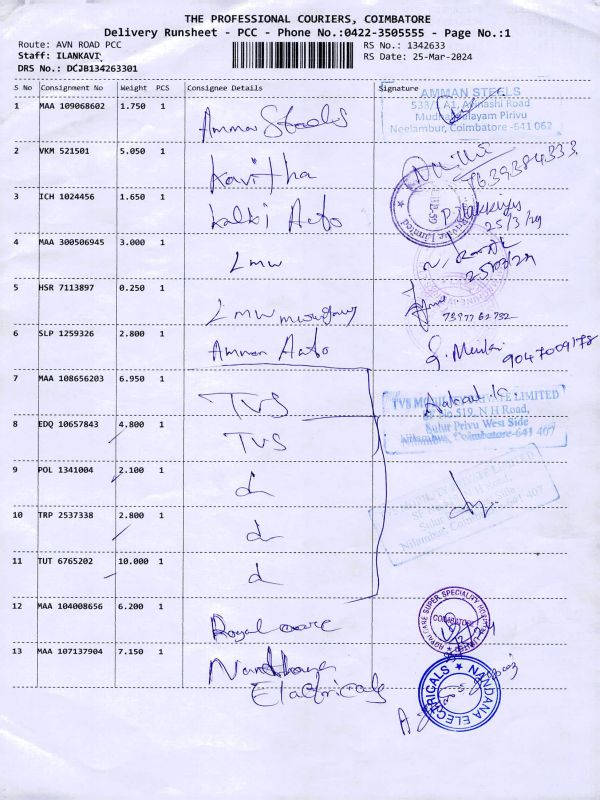 THE PROFESSIONAL COURIERS, COIMBATORE
Delivery Runsheet - PCC - Phone No.:0422-3505555 - Page No.:1
Route: AVN ROAD PCC
RS No.: 1342633
Staff: ILANKAVI
RS Date: 25-Mar-2024
DRS No.: DCJB134263301
S No Consignment No Weight PCS Consignee Details Signature
1 MAA 109068602 1.750 1 Amman Steels
AMMAN STEELS
533/1 A1, Avinashi Road
Neelambur, Coimbatore-641 062
2 VKM 521501 5.050 1 Kavitha
3 ICH 1024456 1.650 1 Kalki Auto
25/3/24
4 MAA 300506945 3.000 1 LMW
25/03/24
5 HSR 7113897 0.250 1 LMW
6 SLP 1259326 2.800 1 Amman Auto
9047009178
7 MAA 108656203 6.950 1 TVS
TVS PRIVATE LIMITED
No 519, N H Road,
Sulur Privu West Side
Nilambur, Coimbatore-641 407
8 EDQ 10657843 4.800 1 TVS
9 POL 1341004 2.100 1
10 TRP 2537338 2.800 1
11 TUT 6765202 10.000 1
12 MAA 104008656 6.200 1 Royal care
ROYAL CARE SUPER SPECIALITY
COIMBATORE
13 MAA 107137904 7.150 1 Nandhana
Electricals
NANDANA ELECTRICALS